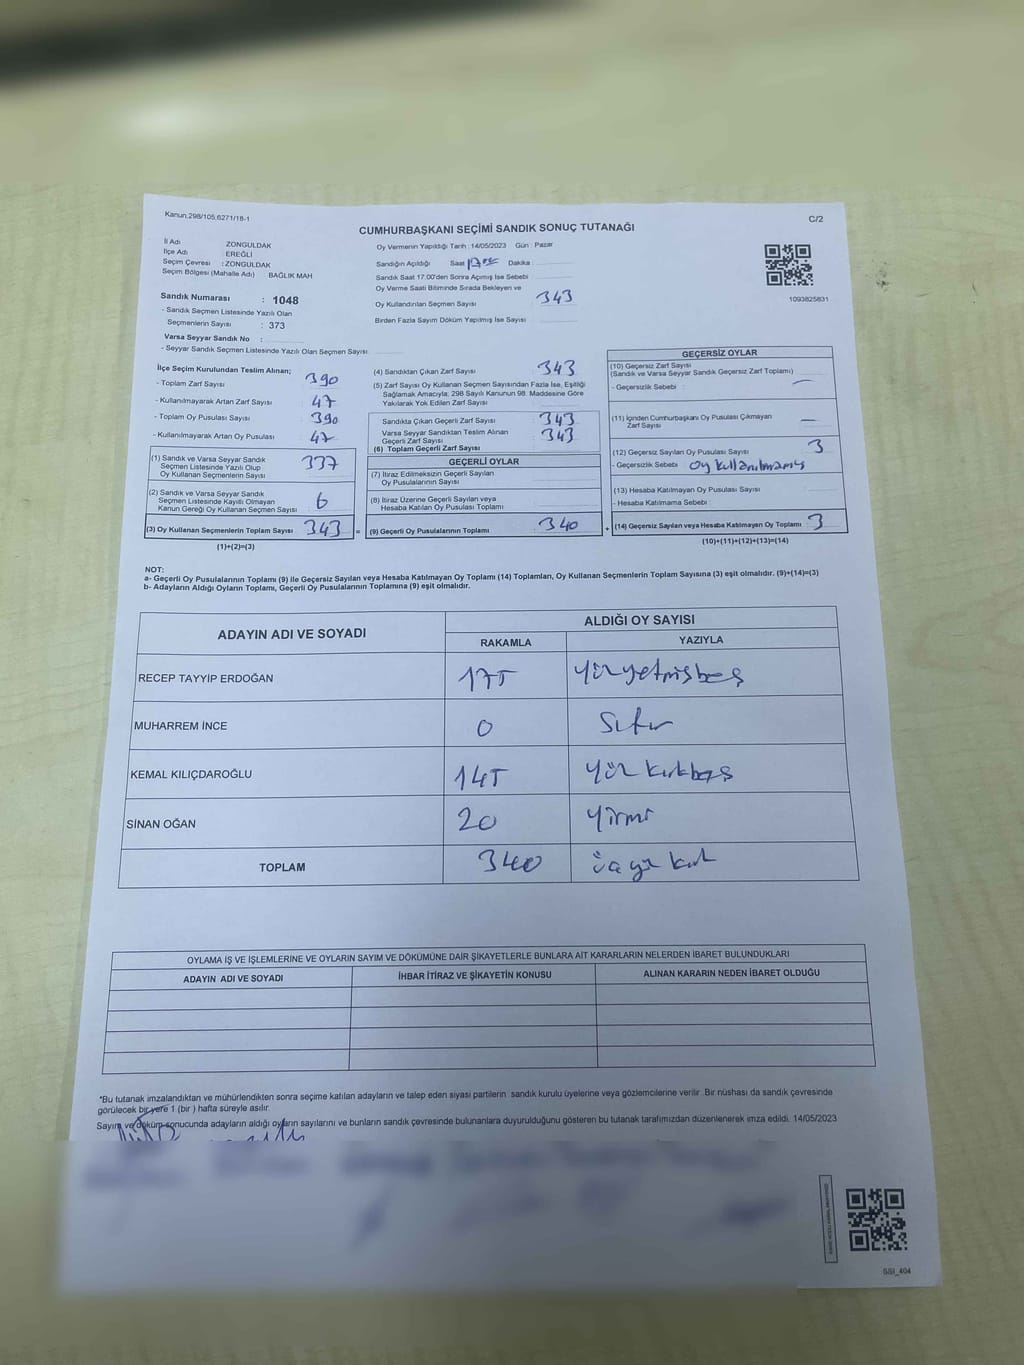 Kanun.298/105,6271/18-1
C/2
CUMHURBAŞKANI SEÇİMİ SANDIK SONUÇ TUTANAĞI
İl Adı ZONGULDAK
İlçe Adı EREĞLİ
Seçim Çevresi : ZONGULDAK
Seçim Bölgesi (Mahalle Adı) BAĞLIK MAH
Sandık Numarası : 1048
- Sandık Seçmen Listesinde Yazılı Olan
Seçmenlerin Sayısı : 373
Varsa Seyyar Sandık No :
- Seyyar Sandık Seçmen Listesinde Yazılı Olan Seçmen Sayısı:
Oy Vermenin Yapıldığı Tarih : 14/05/2023 Gün : Pazar
Sandığın Açıldığı Saat Dakika :
Sandık Saat 17.00'den Sonra Açımış İse Sebebi
Oy Verme Saati Bitiminde Sırada Bekleyen ve
Oy Kullandırılan Seçmen Sayısı 343
Birden Fazla Sayım Döküm Yapılmış İse Sayısı
1093825831
İlçe Seçim Kurulundan Teslim Alınan;
- Toplam Zarf Sayısı 390
- Kullanılmayarak Artan Zarf Sayısı 47
- Toplam Oy Pusulası Sayısı 390
- Kullanılmayarak Artan Oy Pusulası 47
(1) Sandık ve Varsa Seyyar Sandık
Seçmen Listesinde Yazılı Olup
Oy Kullanan Seçmenlerin Sayısı 337
(2) Sandık ve Varsa Seyyar Sandık
Seçmen Listesinde Kayıtlı Olmayan
Kanun Gereği Oy Kullanan Seçmen Sayısı 6
(3) Oy Kullanan Seçmenlerin Toplam Sayısı 343 =
(1)+(2)=(3)
(4) Sandıktan Çıkan Zarf Sayısı 343
(5) Zarf Sayısı Oy Kullanan Seçmen Sayısından Fazla İse, Eşitliği
Sağlamak Amacıyla; 298 Sayılı Kanunun 98. Maddesine Göre
Yakılarak Yok Edilen Zarf Sayısı
Sandıkta Çıkan Geçerli Zarf Sayısı 343
Varsa Seyyar Sandıktan Teslim Alınan
Geçerli Zarf Sayısı 343
(6) Toplam Geçerli Zarf Sayısı
GEÇERLİ OYLAR
(7) İtiraz Edilmeksizin Geçerli Sayılan
Oy Pusulalarının Sayısı
(8) İtiraz Üzerine Geçerli Sayılan veya
Hesaba Katılan Oy Pusulası Toplamı
(9) Geçerli Oy Pusulalarının Toplamı 340 +
GEÇERSİZ OYLAR
(10) Geçersiz Zarf Sayısı
(Sandık ve Varsa Seyyar Sandık Geçersiz Zarf Toplamı)
- Geçersizlik Sebebi : —
(11) İçinden Cumhurbaşkanı Oy Pusulası Çıkmayan
Zarf Sayısı —
(12) Geçersiz Sayılan Oy Pusulası Sayısı 3
- Geçersizlik Sebebi Oy kullanılmamış
(13) Hesaba Katılmayan Oy Pusulası Sayısı
- Hesaba Katılmama Sebebi :
(14) Geçersiz Sayılan veya Hesaba Katılmayan Oy Toplamı 3
(10)+(11)+(12)+(13)=(14)
NOT:
a- Geçerli Oy Pusulalarının Toplamı (9) ile Geçersiz Sayılan veya Hesaba Katılmayan Oy Toplamı (14) Toplamları, Oy Kullanan Seçmenlerin Toplam Sayısına (3) eşit olmalıdır. (9)+(14)=(3)
b- Adayların Aldığı Oyların Toplamı, Geçerli Oy Pusulalarının Toplamına (9) eşit olmalıdır.
ADAYIN ADI VE SOYADI
ALDIĞI OY SAYISI
RAKAMLA YAZIYLA
RECEP TAYYİP ERDOĞAN 175 Yüzyetmişbeş
MUHARREM İNCE 0 Sıfır
KEMAL KILIÇDAROĞLU 145 Yüz kırkbeş
SİNAN OĞAN 20 Yirmi
TOPLAM 340 üç yüz kırk
OYLAMA İŞ VE İŞLEMLERİNE VE OYLARIN SAYIM VE DÖKÜMÜNE DAİR ŞİKAYETLERLE BUNLARA AİT KARARLARIN NELERDEN İBARET BULUNDUKLARI
ADAYIN ADI VE SOYADI İHBAR İTİRAZ VE ŞİKAYETİN KONUSU ALINAN KARARIN NEDEN İBARET OLDUĞU
*Bu tutanak imzalandıktan ve mühürlendikten sonra seçime katılan adayların ve talep eden siyasi partilerin sandık kurulu üyelerine veya gözlemcilerine verilir. Bir nüshası da sandık çevresinde
görülecek bir yere 1 (bir ) hafta süreyle asılır.
Sayım ve döküm sonucunda adayların aldığı oyların sayılarını ve bunların sandık çevresinde bulunanlara duyurulduğunu gösteren bu tutanak tarafımızdan düzenlenerek imza edildi. 14/05/2023